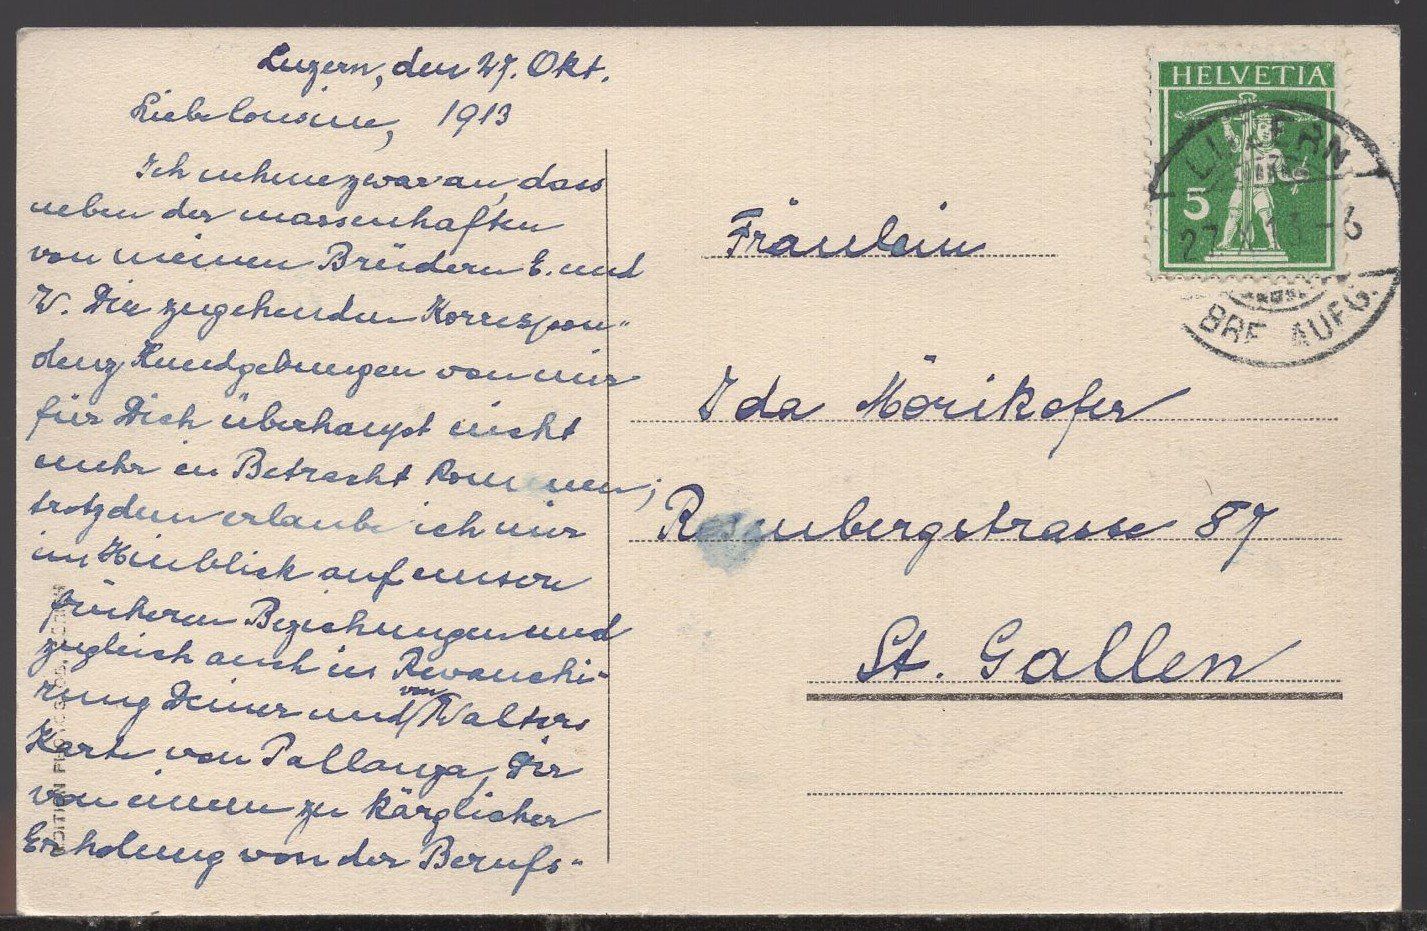 Luzern, den 27. Okt.
1913
Liebe Cousine,
Ich nehme zwar an, dass
neben der massenhaften
von meinen Brüdern E. und
W. Dir zugehenden Korrespon-
denz Kundgebungen von mir
für Dich überhaupt nicht
mehr in Betracht kommen;
trotzdem erlaube ich mir
im Hinblick auf unsere
früheren Beziehungen und
zugleich auch in Revanchi-
rung Deiner und von Walters
Karte von Pallanza, Dir
von einem zu kärglicher
Erholung von der Berufs-
HELVETIA
5
LUZERN
27. X. 13 - 6
BRF. AUFG.
Fräulein
Ida Mörikofer
Rosenbergstrasse 87
St. Gallen
EDITION